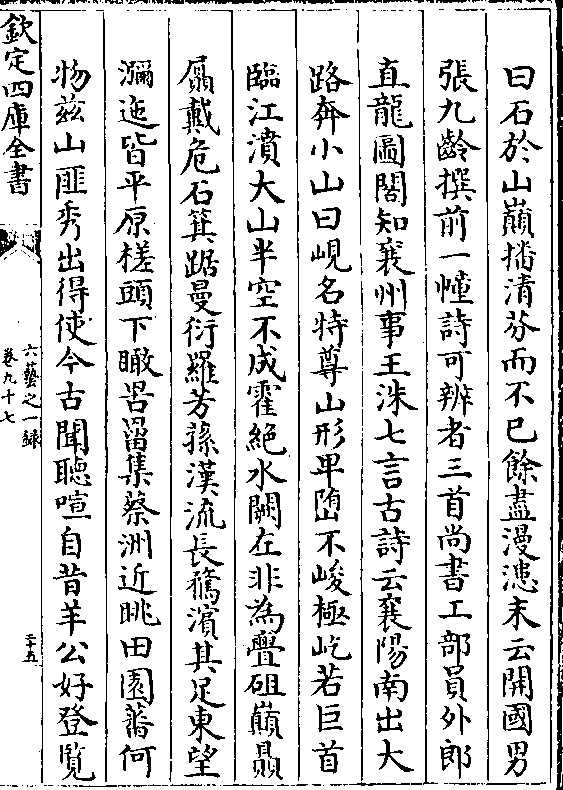 曰石於山巓播清芬而不已餘盡漫漶末云開國男
張九齡撰前一幢詩可辨者三首尚書工部員外郎
直龍圖閣知襄州事王洙七言古詩云襄陽南出大
路奔小山曰峴名特尊山形卑墮不峻極屹若巨首
臨江濆大山半空不成霍絶水闕在非為亹砠巔贔
屭戴危石箕踞曼衍羅芳蓀漢流長騖濱其足東望
瀰迤皆平原槎頭下瞰罟𦊰集蔡洲近眺田園蕃何
物兹山匪秀出得使今古聞聽喧自昔羊公好登覧
欽定四庫全書
六藝之一録
卷九十七
二十五